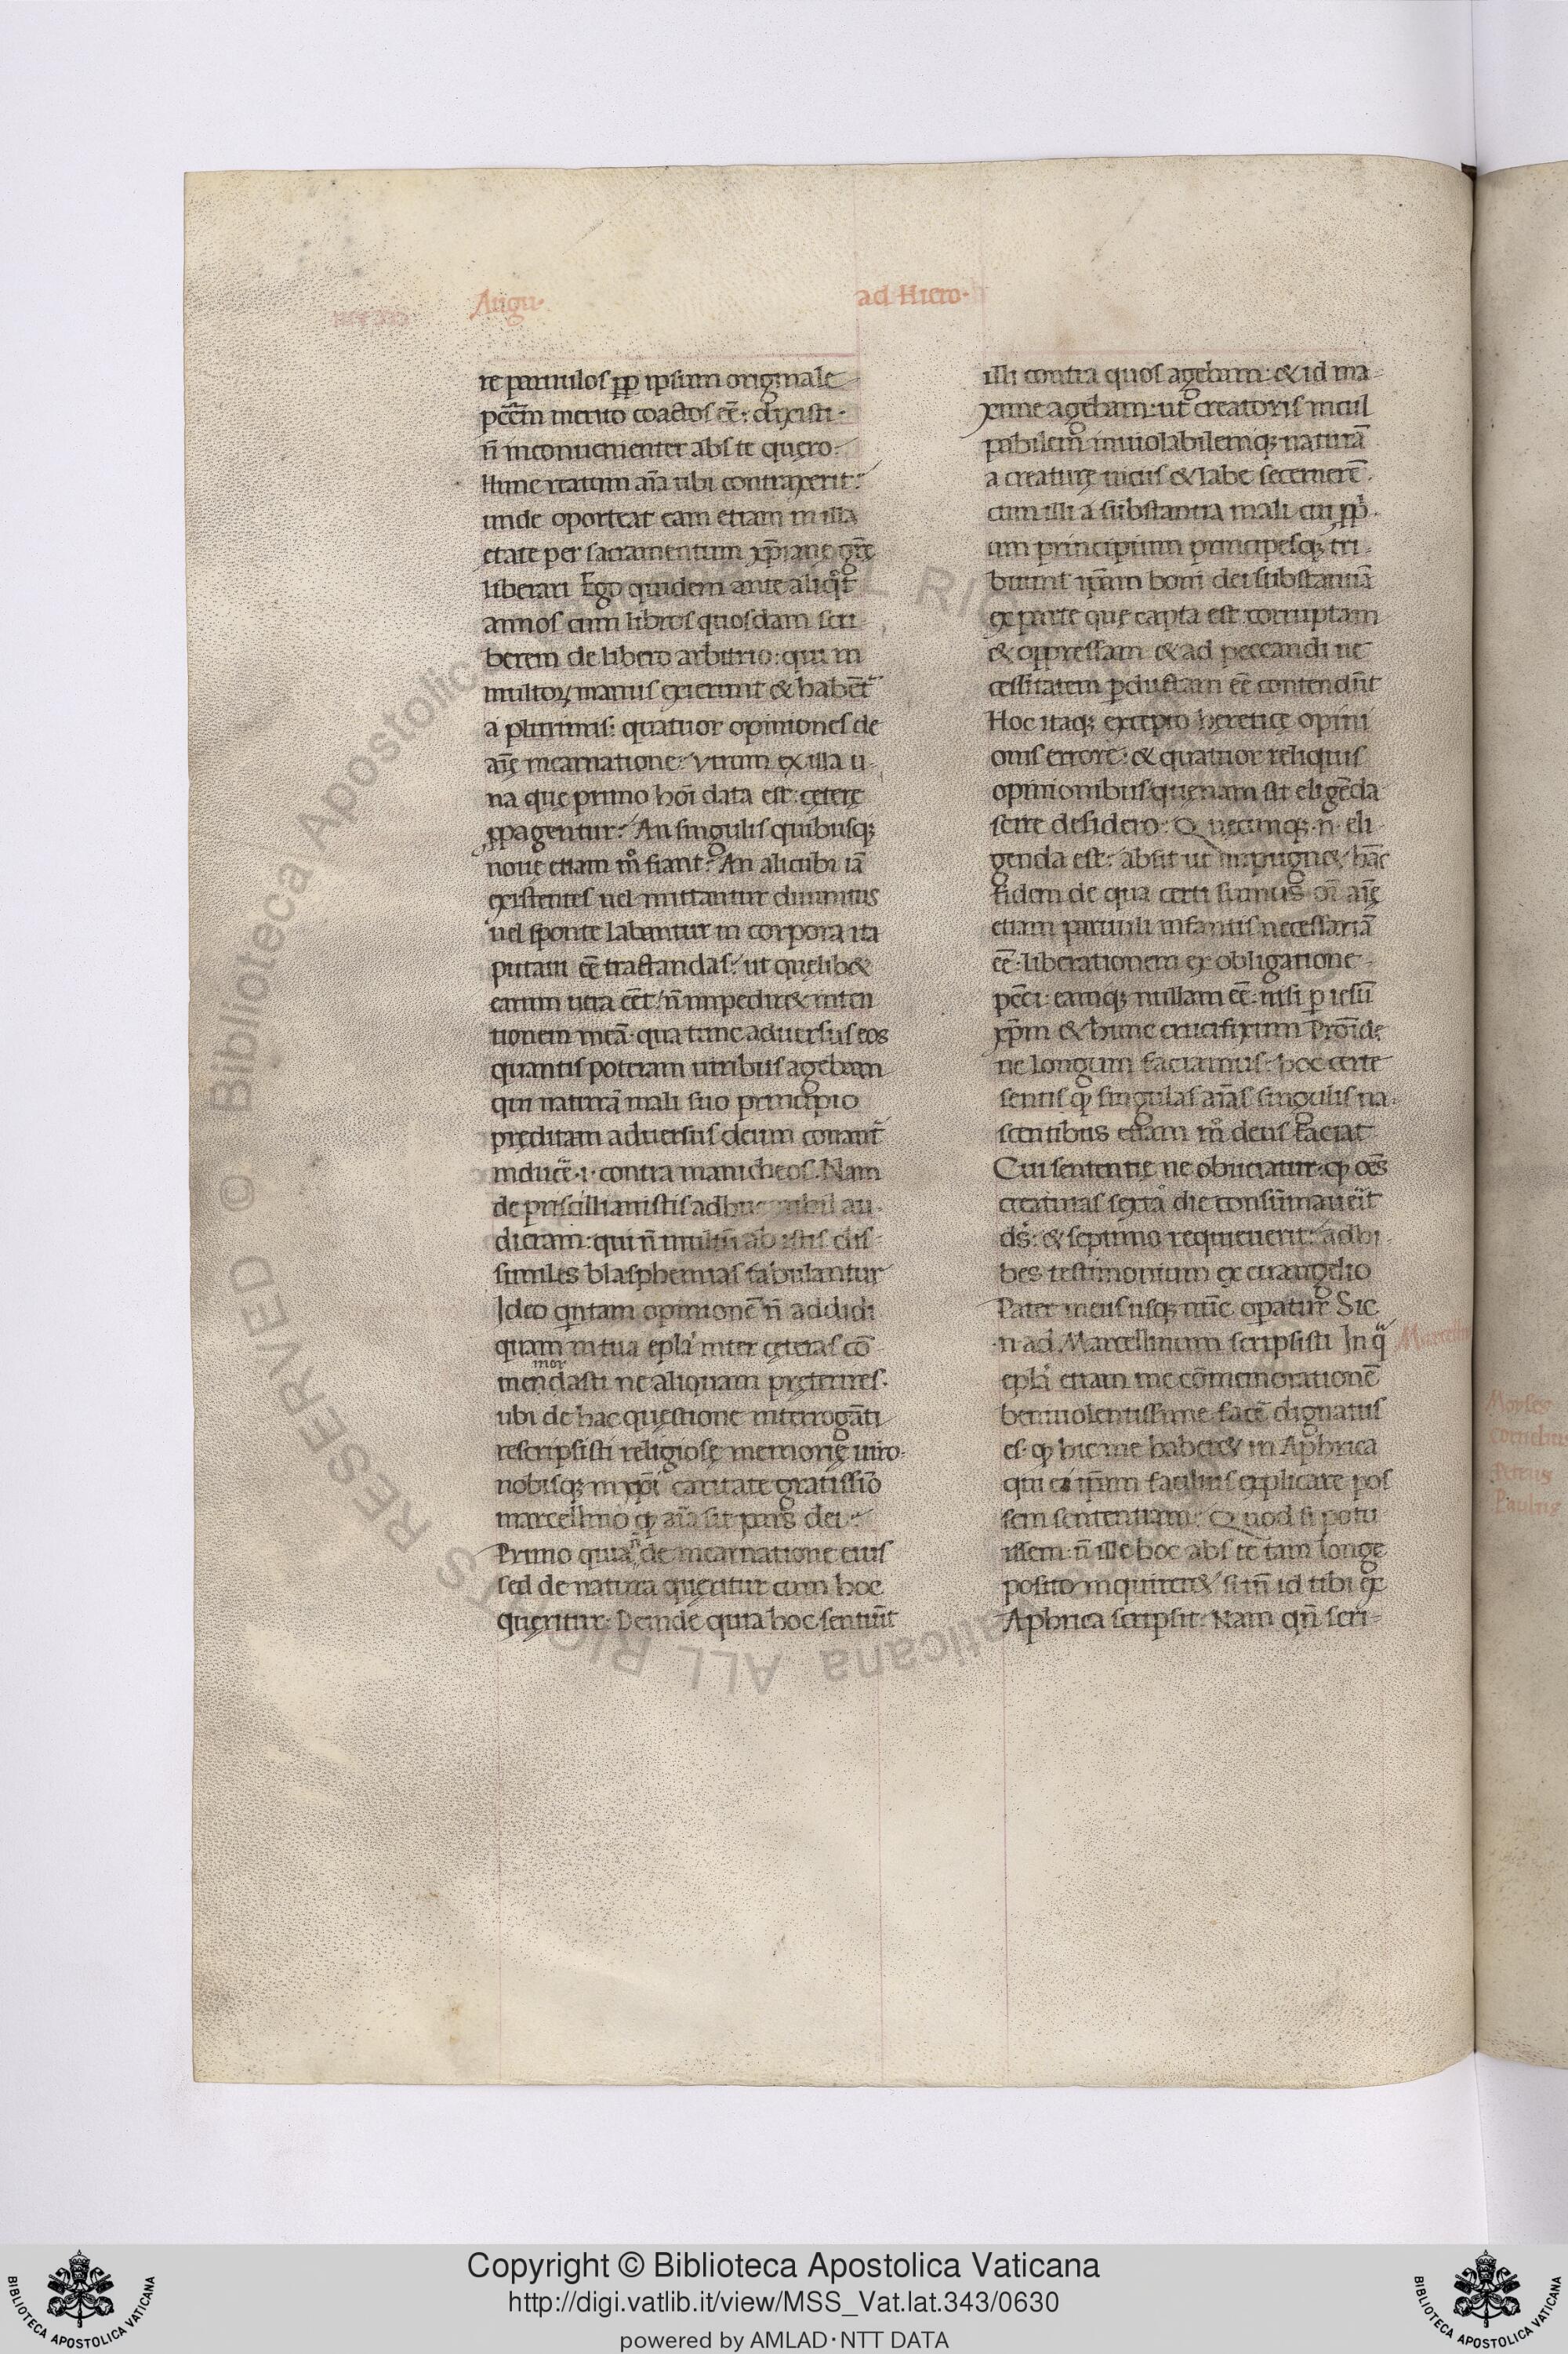 Augu·
ad Hiero·
re paruulos ꝓp ipsum originale
pcc̄m merito coactos eē: dixisti·
n̄ inconuenienter abs te quęro·
Hunc reatum aīa ubi contraxerit:
unde oporteat eam etiam in illa
etate per sacramentum xp̄ianę grē
liberari Ego quidem ante aliqͦt
annos cum libros quosdam scri
berem de libero arbitrio: qui in
multoꝝ manus exierunt & habēt᷑
a plurimis: quatuor opiniones de
aīę incarnatione: Vtrum ex illa u-
na que primo hoī data est: cęterę
ꝓpagentur: An singulis quibusq;
noue etiam mͦ fiant: An alicubi iā
existentes uel mittantur diuinitus
uel sponte labantur in corpora ita
putaui eē tractandas: ut quęlib&
earum uera eēt n̄ impedir& inten
tionem meā· qua tunc aduersus eos
quantis poteram uiribus agebam
qui naturā mali suo principio
pręditam aduersus deum conant᷑
inducē·i· contra manicheos. Nam
de priscillianistis adhuc nihil au-
dieram: qui n̄ multū ab istis dis-
similes blasphemias fabulantur
Ideo qͥntam opinionē n̄ addidi
quam in tua epl̄a inter cęteras cō
mor
mendasti ne aliquam pręterires·
ubi de hac quęstione interrogāti
rescripsisti religiosę memorię uiro·
nobisq; in xp̄i caritate gratissīo
marcellino
Primo quia n̄ de incarnatione eius
sed de natura quęritur cum hoc
quęritur· Deinde quia hoc sentiūt
illi contra quos agebam: & id ma-
xime agebam: ut creatoris incul
pabilem inuiolabilemq; naturā
a creaturę uiciis & labe secernerē·
cum illi a substantia mali cui ꝓpͥ·
um principium principesq; tri-
buunt ip̄am boni dei substantiā
ex parte quę capta est corruptam
& oppressam & ad peccandi ne
cessitatem ꝑductam eē contendūt
Hoc itaq; excepto heretice opini
onis errore: & quatuor reliquis
opinionibus quęnam sit eligēda
scire desidero· Quecunq; n̄ eli
genda est: absit ut impugn& hāc
fidem de qua certi sumus oī aīę
etiam paruuli infantis necessariā
eē: liberationem ex obligatione
pēci: eamq; nullam eē: nisi ꝑ iesū
xp̄m & hunc crucifixum Proīde
ne longum faciamus: hoc certe
sentis ꝙ singulas aīas singulis na-
scentibus etiam mͦ deus faciat
Cui sententię ne obiiciatur ꝙ oēs
creaturas sexta die consūmauerit
ds̄: & septimo requieuerit: adhi-
bes testimonium ex euangelio
Pater meus usq; nūc opatur Sic
·n ad Marcellinum scripsisti In qͣ
epl̄a etiam me cōmemorationē
beniuolentissime facē dignatus
es· ꝙ hic me haber& in Aphrica
qui ei ip̄am facilius explicare pos
sem sententiam: Quod si potu
issem: n̄ ille hoc abs te tam longe
posito inquirer& si tn̄ id tibi ex
Aphrica scripsit· Nam qn̄ scri-
Moyses
Cornelius
Petrus
Paulus
© Biblioteca Apostolica Vaticana ALL RIGHTS RESERVED
Copyright © Biblioteca Apostolica Vaticana
http://digi.vatlib.it/view/MSS_Vat.lat.343/0630
powered by AMLAD·NTT DATA
BIBLIOTECA APOSTOLICA VATICANA
BIBLIOTECA APOSTOLICA VATICANA